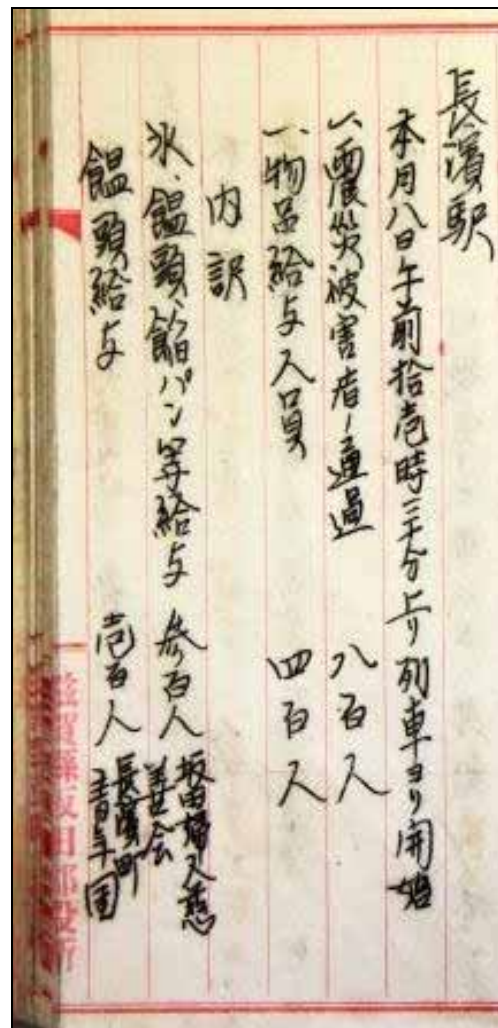 長濱駅
本月八日午前拾壱時三十分上リ列車ヨリ開始
一、震災被害者ノ通過 八百人
一、物品給与人員 四百人
内訳
氷、饂頭、餡パン等給与 参百人 坂田婦人慈
善会
饂頭給与 壱百人 長濱町
青年団
滋賀縣坂田郡役所